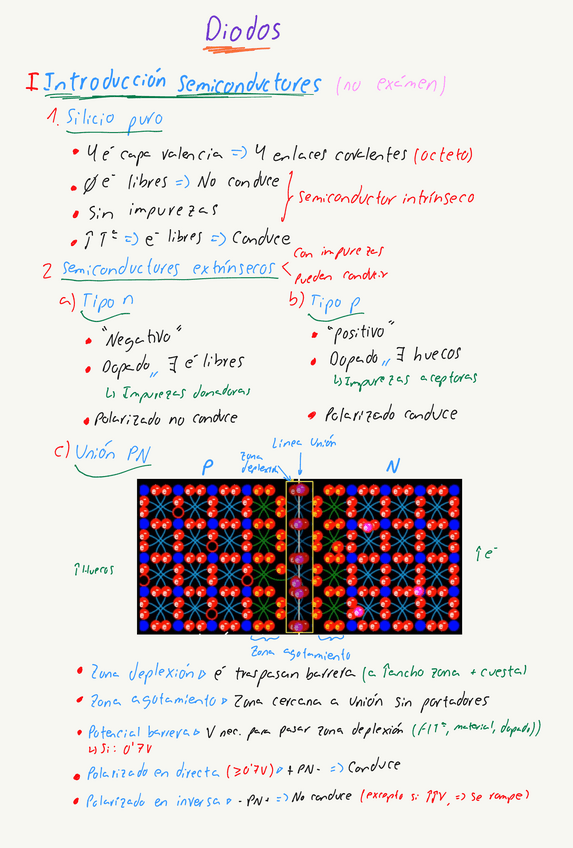 Diodos
I Introducción semiconductores (no exámen)
1. Silicio puro
• 4 é capa valencia => 4 enlaces covalentes (octeto)
• Ø e- libres => No conduce
• Sin impurezas
semiconductor intrínseco
• ↑ Tª => e- libres => Conduce
2 semiconductores extrínsecos
Con impurezas
pueden conducir
a) Tipo n
• "Negativo"
• Dopado,, ∃ é libres
↳ Impurezas donadoras
• Polarizado no conduce
b) Tipo p
• "positivo"
• Dopado,, ∃ huecos
↳ Impurezas aceptoras
• Polarizado conduce
c) Unión PN
Linea Unión
Zona
deplexión
P N
↑ Huecos
↑ e-
Zona agotamiento
• Zona deplexión ▷ é traspasan barrera (a ↑ancho zona + cuesta)
• Zona agotamiento ▷ Zona cercana a unión sin portadores
• Potencial barrera ▷ V nec. para pasar zona deplexión (f(Tª, material, dopado))
↳ Si: 0'7V
• Polarizado en directa (≥0'7V) ▷ + PN - => Conduce
• Polarizado en inversa ▷ - PN + => No conduce (excepto si ↑↑V, => se rompe)